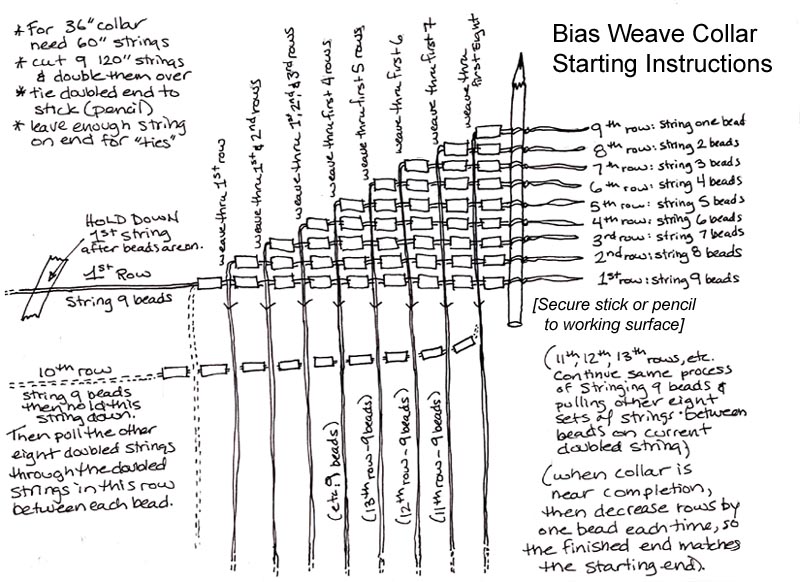 Bias Weave Collar
Starting Instructions
* For 36" collar
need 60" strings
* cut 9 120" strings
& double them over
* tie doubled end to
stick (pencil)
* leave enough string
on end for "ties"
weave thru 1st row
weave thru 1st & 2nd rows
weave thru 1st, 2nd, & 3rd rows
weave thru first 4 rows
weave thru first 5 rows
weave thru first 6
weave thru first 7
weave thru
first eight
9th row: string one bead
8th row: string 2 beads
7th row: string 3 beads
6th row: string 4 beads
5th row: string 5 beads
4th row: string 6 beads
3rd row: string 7 beads
2nd row: string 8 beads
1st row: string 9 beads
HOLD DOWN
1st string
after beads are on.
1st Row
String 9 beads
[Secure stick or pencil
to working surface]
10th row
string 9 beads
then hold this
string down.
Then pull the other
eight doubled strings
through the doubled
strings in this row
between each bead.
(etc. 9 beads)
(13th row - 9 beads)
(12th row - 9 beads)
(11th row - 9 beads)
(11th, 12th, 13th rows, etc.
continue same process
of stringing 9 beads &
pulling other eight
sets of strings between
beads on current
doubled string)
(when collar is
near completion,
then decrease rows by
one bead each time, so
the finished end matches
the starting end).